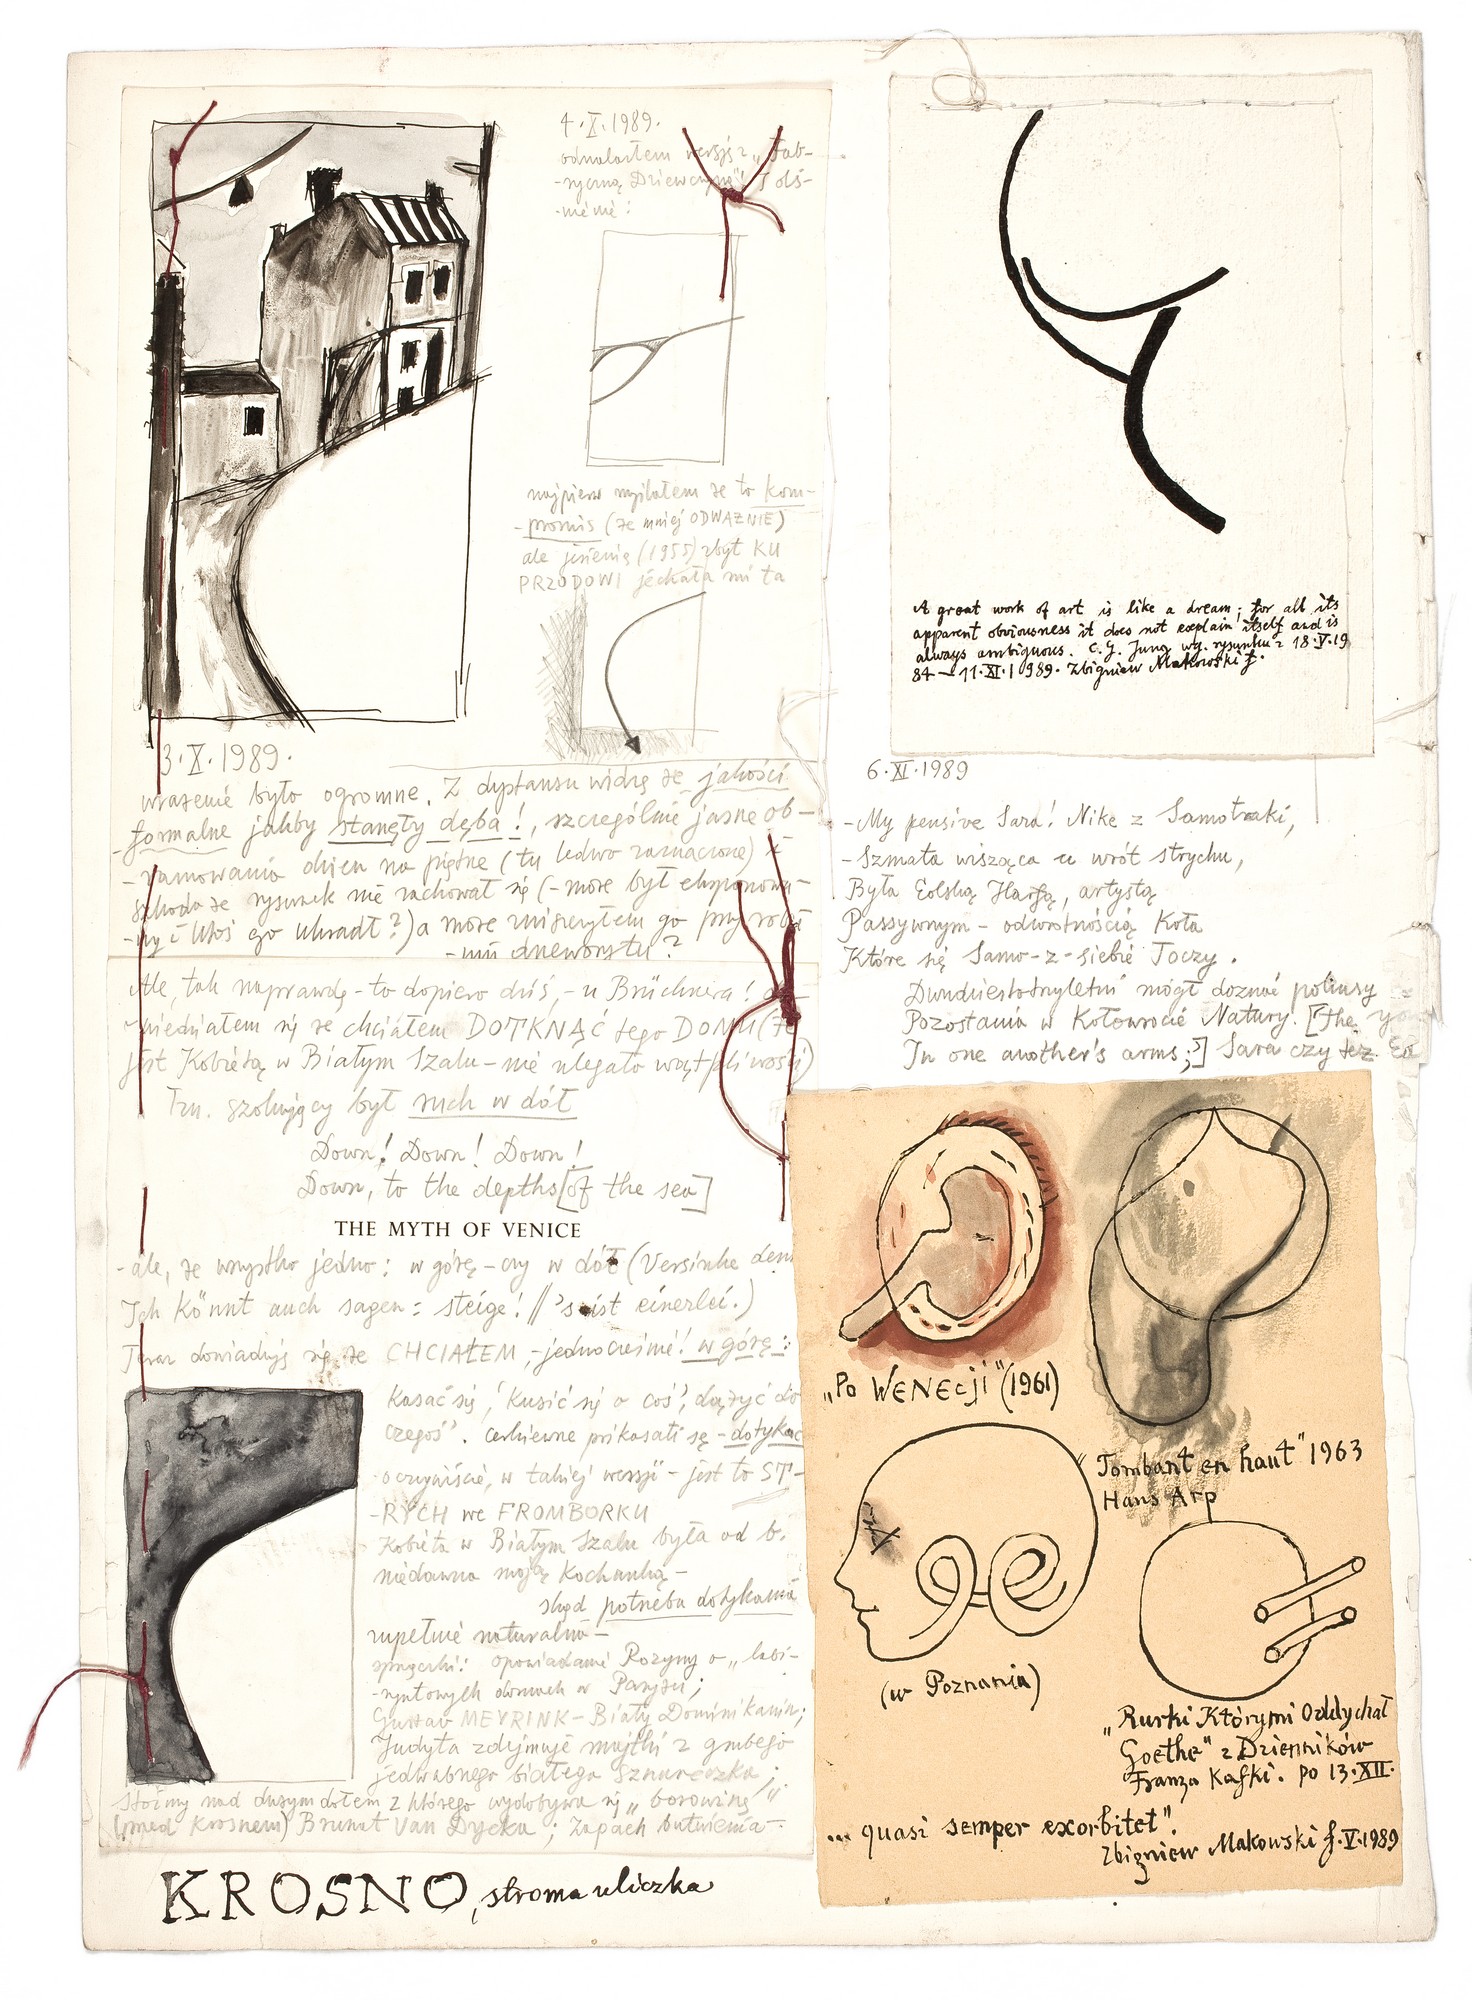 4·X·1989.
odnalazłem wersję z „Fab-
-ryczną Dziewczyną"!
najpierw myślałem że to kom-
-promis (że mniej ODWAŻNIE)
ale jesienią (1955) zbyt KU
PRZODOWI jechała mi ta
3·X·1989.
wrażenie było ogromne. Z dystansu widzę że jakości
formalne jakby stanęły dęba!, szczególnie jasne ob-
-ramowania okien na piętrze (tu ledwo zaznaczone)
szkoda że rysunek nie zachował się (-może był eksponowa-
-ny i ktoś go ukradł?) a może zniszczyłem go przy robie
-niu drzeworytu?
Ale, tak naprawdę - to dopiero dziś, - u Brücknera!
-wiedziałem się że chciałem DOTKNĄĆ tego DOMU (że
jest Kobietą w Białym Szalu - nie ulegało wątpliwości)
Tzn. szokujący był ruch w dół
Down! Down! Down!
Down, to the depths [of the sea]
THE MYTH OF VENICE
-ale, że wszystko jedno: w górę - czy w dół (Versinke denn
Ich könnt auch sagen: steige! // 's ist einerlei.)
Teraz dowiaduję się że CHCIAŁEM, -jednocześnie! w górę:
Kasać się, 'kusić się o coś', dążyć do
czegoś'. Cerkiewne prikasati sę - dotykać
oczywiście, w takiej wersji - jest to ST-
-RYCH we FROMBORKU
Kobieta w Białym Szalu była od b.
niedawna moją Kochanką -
stąd potrzeba dotykania
zupełnie naturalna -
opowiadanie Rozyny o „labi-
-ryntowych domach w Paryżu;
Gustav MEYRINK - Biały Dominikanin;
Judyta zdejmuje majtki z grubego
jedwabnego białego Sznureczka;
Stoimy nad dużym dołem z którego wydobywa się „borowinę"
(przed Krosnem) Brunat Van Dycka; Zapach butwienia -
KROSNO, stroma uliczka
A great work of art is like a dream; for all its
apparent obviousness it does not explain itself and is
always ambiguous. C.G. Jung wg. rysunku z 18·V·19
84 - 11·XI·1989. Zbigniew Makowski f.
6·XI·1989
-My pensive Sara! Nike z Samotraki,
-Szmata wisząca u wrót strychu,
Była Eolską Harfą, artystą
Passywnym - odwrotnością Koła
Które się Samo-z-siebie Toczy.
Dwudziestotrzyletni mógł doznać pokusy
Pozostania w Kołowrocie Natury. [The
In one another's arms;] Sara czy też
„Po WENEcji" (1961)
„Tombant en haut" 1963
Hans Arp
(w Poznaniu)
„Rurki Którymi Oddychał
Goethe" z Dzienników
Franza Kafki. po 13·XII·
... quasi semper exorbitet".
Zbigniew Makowski f. V·1989